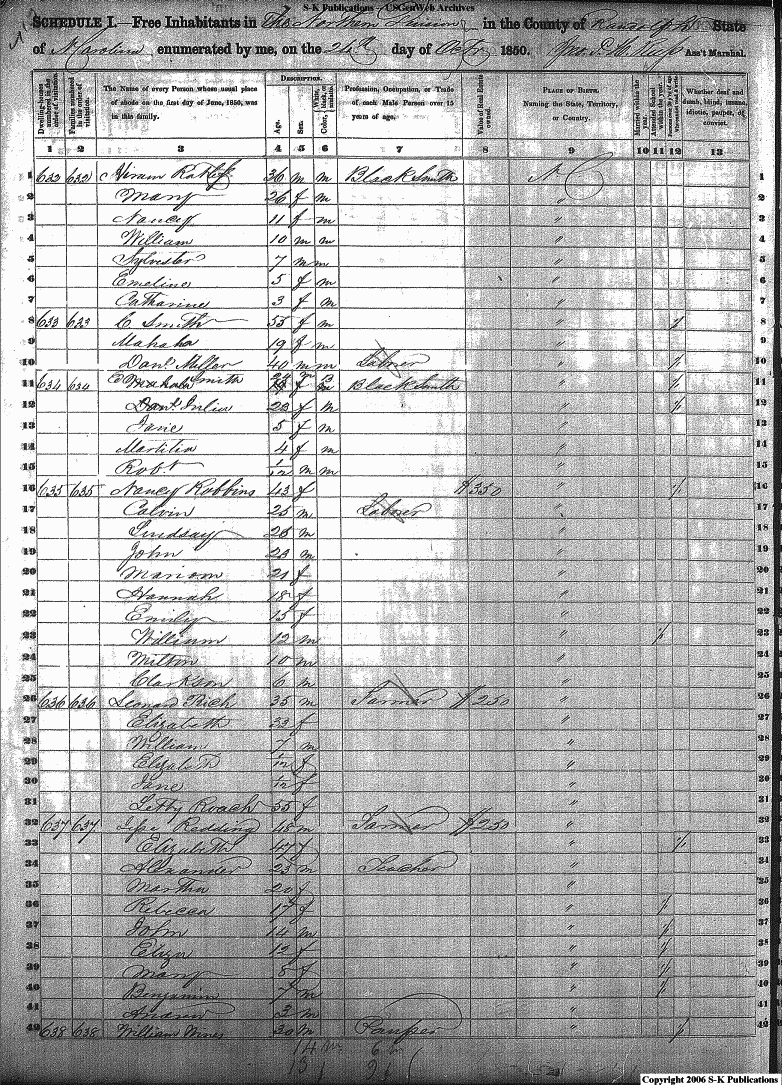 S-K Publications - USGenWeb Archives
SCHEDULE I.—Free Inhabitants in The Northern Division in the County of Randolph State
of N Carolina enumerated by me, on the 26th day of Octr 1850. Ass't Marshal.
Dwelling-houses numbered in the order of visitation. Families numbered in the order of visitation. The Name of every Person whose usual place of abode on the first day of June, 1850, was in this family. DESCRIPTION. Age. Sex. Color, White, black, or mulatto. Profession, Occupation, or Trade of each Male Person over 15 years of age. Value of Real Estate owned. PLACE OF BIRTH. Naming the State, Territory, or Country. Married within the year. Attended School within the year. Whether deaf and dumb, blind, insane, idiotic, pauper, or convict.
1 2 3 4 5 6 7 8 9 10 11 12 13
1 632 632 Hiram Ratliff 36 m m Black Smith N C 1
2 Mary 26 f m " 2
3 Nancy 11 f m " 3
4 William 10 m m " 4
5 Sylvester 7 m m " 5
6 Emeline 5 f m " 6
7 Catharine 3 f m " 7
8 633 633 C Smith 55 f m " / 8
9 Mahala 19 f m " 9
10 Danl Miller 40 m m Laborer " / 10
11 634 634 E Smith Black Smith " / 11
12 Julia 23 f m " / 12
13 Jane 5 f m " 13
14 Martitia 4 f m " 14
15 Robt 1/12 m m " 15
16 635 635 Nancy Robbins 43 f $350 " / 16
17 Calvin 25 m Laborer " 17
18 Lindsay 26 m " 18
19 John 23 m " 19
20 Mariam 21 f " 20
21 Hannah 18 f " 21
22 Emily 15 f " 22
23 William 12 m " / 23
24 Milton 10 m " 24
25 Clarkson 6 m " 25
26 636 636 Leonard Rich 35 m Farmer $250 " 26
27 Elizabeth 33 f " 27
28 William 7 m " 28
29 Elizabeth f " 29
30 Jane f " 30
31 Letty Roach 55 f " 31
32 637 637 Redding 48 m Farmer $250 " 32
33 Elizabeth 47 f " / 33
34 Alexander 23 m Teacher " 34
35 Martha 20 f " 35
36 Rebecca 17 f " / 36
37 John 14 m " / 37
38 Eliza 12 f " / 38
39 Mary 8 f " / 39
40 Benjamin 7 m " / 40
41 Andrew 3 m " 41
42 638 638 William 30 m Pauper " / 42
14 m
Copyright 2006 S-K Publications